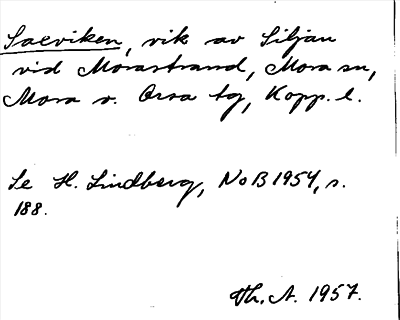 Saxviken, vik av Siljan
vid Morastrand, Mora sn,
Mora o. Orsa tg, Kopp. l.
Se H. Lindberg, NoB 1954, s.
188.
Th. A. 1957.